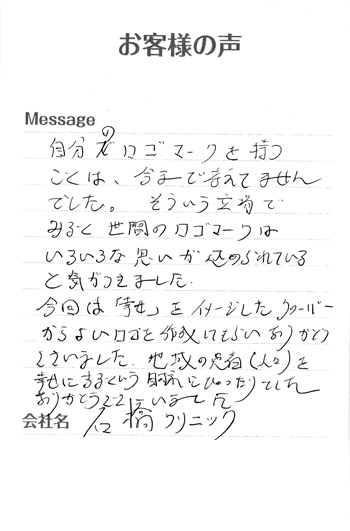 お客様の声
Message
自分のロゴマークを持つ
ことは、今まで考えてません
でした。そういう立場で
みると世間のロゴマークは
いろいろな思いが込められている
と気がつきました。
今回は「幸せ」をイメージしたクローバー
からよいロゴを作成してもらいありがとう
ございました。地域の患者(人々)を
幸せにするという目標にぴったりでした
ありがとうございました
会社名 石橋クリニック